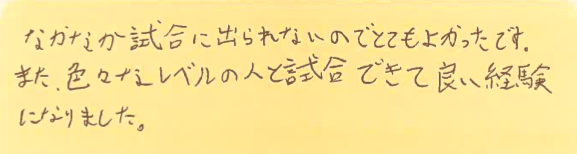 なかなか試合に出られないのでとてもよかったです.
また、色々なレベルの人と試合できて良い経験
になりました。